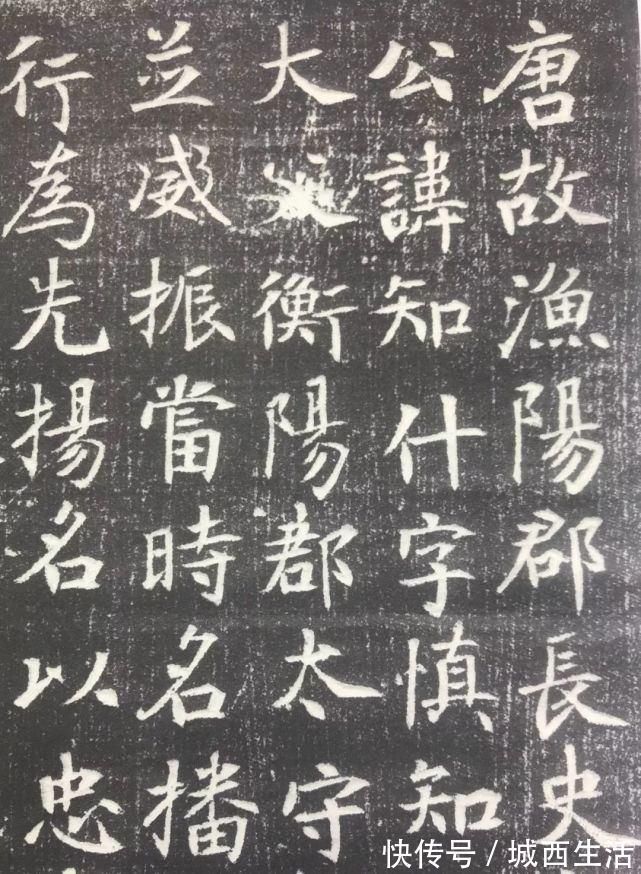 唐故漁陽郡長史
公諱知什字慎知
大衡陽都太守
並威振當時名播
行為先揚名以忠
快传号/城西生活